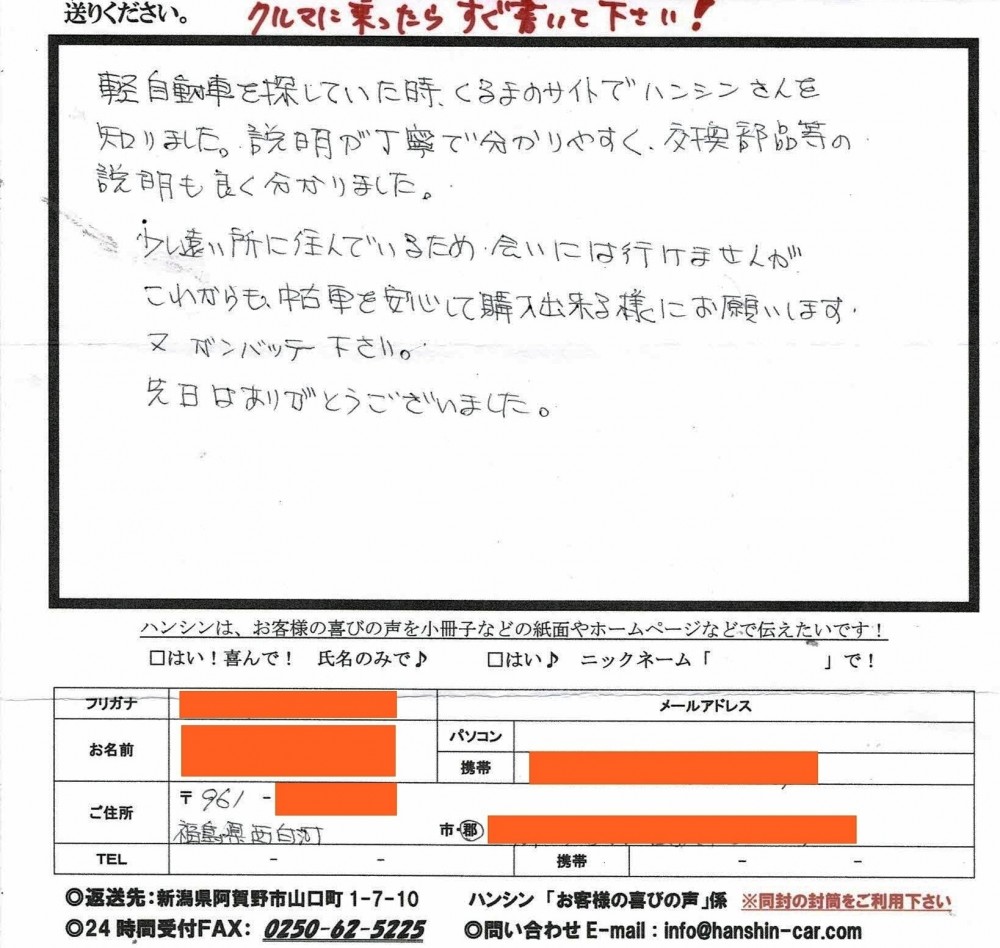 送りください。
クルマに乗ったら すぐ書いて下さい!
軽自動車を探していた時、くるまのサイトでハンシンさんを
知りました。説明が丁寧で分かりやすく、交換部品等の
説明も良く分かりました。
少し遠い所に住んでいるため、会いには行けませんが
これからも、中古車を安心して購入出来る様にお願いします。
又 ガンバッテ下さい。
先日はありがとうございました。
ハンシンは、お客様の喜びの声を小冊子などの紙面やホームページなどで伝えたいです!
□はい!喜んで! 氏名のみで♪ □はい♪ ニックネーム「 」で!
フリガナ メールアドレス
お名前 パソコン
携帯
ご住所 〒961 -
福島県西白河 市・郡
TEL - - 携帯 - -
◎返送先:新潟県阿賀野市山口町1-7-10 ハンシン「お客様の喜びの声」係 ※同封の封筒をご利用下さい
◎24時間受付FAX: 0250-62-5225 ◎問い合わせE-mail:info@hanshin-car.com